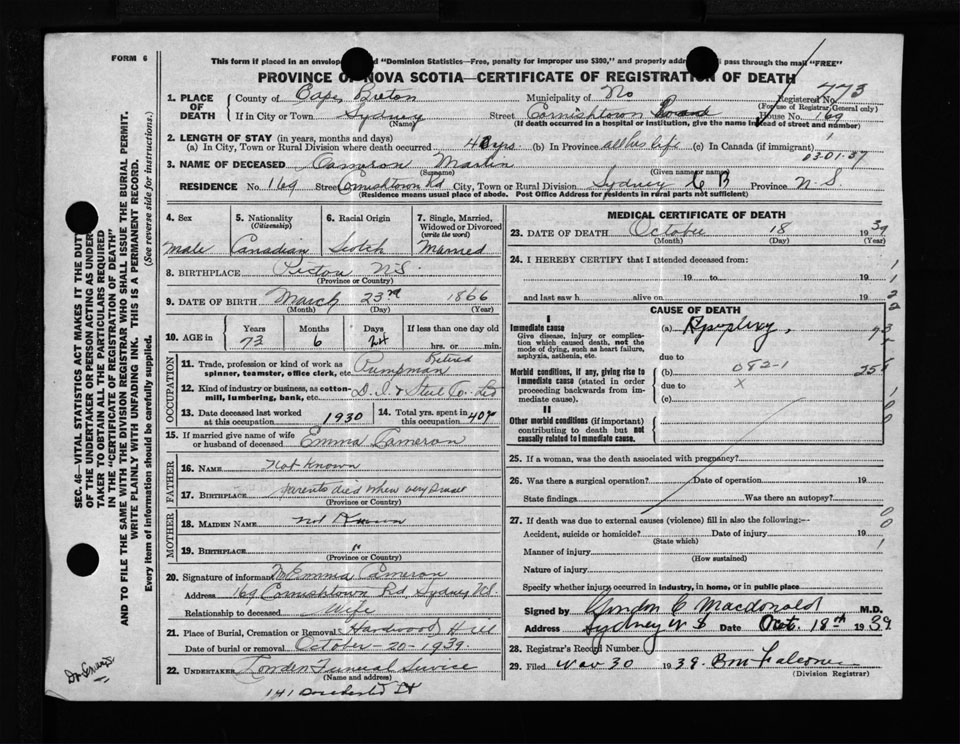 FORM 6
This form if placed in an envelop ed "Dominion Statistics—Free, penalty for improper use $300," and properly addre ll pass through the mail "FREE"
PROVINCE OF NOVA SCOTIA—CERTIFICATE OF REGISTRATION OF DEATH
Registered No. 773
(For use of Registrar General only)
1. PLACE OF DEATH County of Cape Breton Municipality of No
If in City or Town Sydney (Name) Street Cornishtown Road House No. 169
(If death occurred in a hospital or institution, give the name instead of street and number)
2. LENGTH OF STAY (in years, months and days)
(a) In City, Town or Rural Division where death occurred yrs. (b) In Province all his life (c) In Canada (if immigrant)
03-01-37
3. NAME OF DECEASED Cameron Martin
(Surname) (Given name or names)
RESIDENCE No. 169 Street Cornishtown Rd City, Town or Rural Division Sydney C B Province N-S
(Residence means usual place of abode. Post Office Address for residence in rural parts not sufficient)
4. Sex 5. Nationality (Citizenship) 6. Racial Origin 7. Single, Married, Widowed or Divorced (write the word)
Male Canadian Scotch Married
8. BIRTHPLACE Pictou N.S.
(Province or Country)
9. DATE OF BIRTH March 23rd 1866
(Month) (Day) (Year)
10. AGE in Years Months Days If less than one day old
73 6 24 hrs. or min.
OCCUPATION
11. Trade, profession or kind of work as spinner, teamster, office clerk, etc. Retired Pumpman
12. Kind of industry or business, as cotton-mill, lumbering, bank, etc. D. I. & Steel Co. Ltd
13. Date deceased last worked at this occupation 1930
14. Total yrs. spent in this occupation 40
15. If married give name of wife or husband of deceased Emma Cameron
FATHER
16. NAME Not Known
17. BIRTHPLACE parents died when very small
(Province or Country)
MOTHER
18. MAIDEN NAME not Known
19. BIRTHPLACE "
(Province or Country)
20. Signature of informant Emma Cameron
Address 169 Cornishtown Rd, Sydney N.S.
Relationship to deceased Wife
21. Place of Burial, Cremation or Removal Hardwood Hill
Date of burial or removal October-20-1939.
22. UNDERTAKER London Funeral Service
(Name and address)
141 Dorchester St
MEDICAL CERTIFICATE OF DEATH
23. DATE OF DEATH October 18 1939
(Month) (Day) (Year)
24. I HEREBY CERTIFY that I attended deceased from:
19 to 19
and last saw h alive on 19
CAUSE OF DEATH
I
Immediate cause
Give disease, injury or complication which caused death, not the mode of dying, such as heart failure, asphyxia, asthenia, etc.
(a) Apoplexy,
due to
Morbid conditions, if any, giving rise to immediate cause (stated in order proceeding backwards from immediate cause).
(b) 082-1
due to X
(c)
II
Other morbid conditions (if important) contributing to death but not causally related to immediate cause.
25. If a woman, was the death associated with pregnancy?
26. Was there a surgical operation? Date of operation 19
State findings Was there an autopsy?
27. If death was due to external causes (violence) fill in also the following:—
Accident, suicide or homicide? Date of injury 19
(State which)
Manner of injury
(How sustained)
Nature of injury
Specify whether injury occurred in industry, in home, or in public place
Signed by C Macdonald M.D.
Address Sydney N S Date Oct. 18th 1939
28. Registrar's Record Number
29. Filed Nov 30 1939
(Division Registrar)
SEC. 46—VITAL STATISTICS ACT MAKES IT THE DUT
OF THE UNDERTAKER OR PERSON ACTING AS UNDER-
TAKER TO OBTAIN ALL THE PARTICULARS REQUIRED
IN THE "CERTIFICATE OF REGISTRATION OF DEATH"
AND TO FILE THE SAME WITH THE DIVISION REGISTRAR WHO SHALL ISSUE THE BURIAL PERMIT.
WRITE PLAINLY WITH UNFADING INK. THIS IS A PERMANENT RECORD.
Every item of information should be carefully supplied. (See reverse side for instructions.)